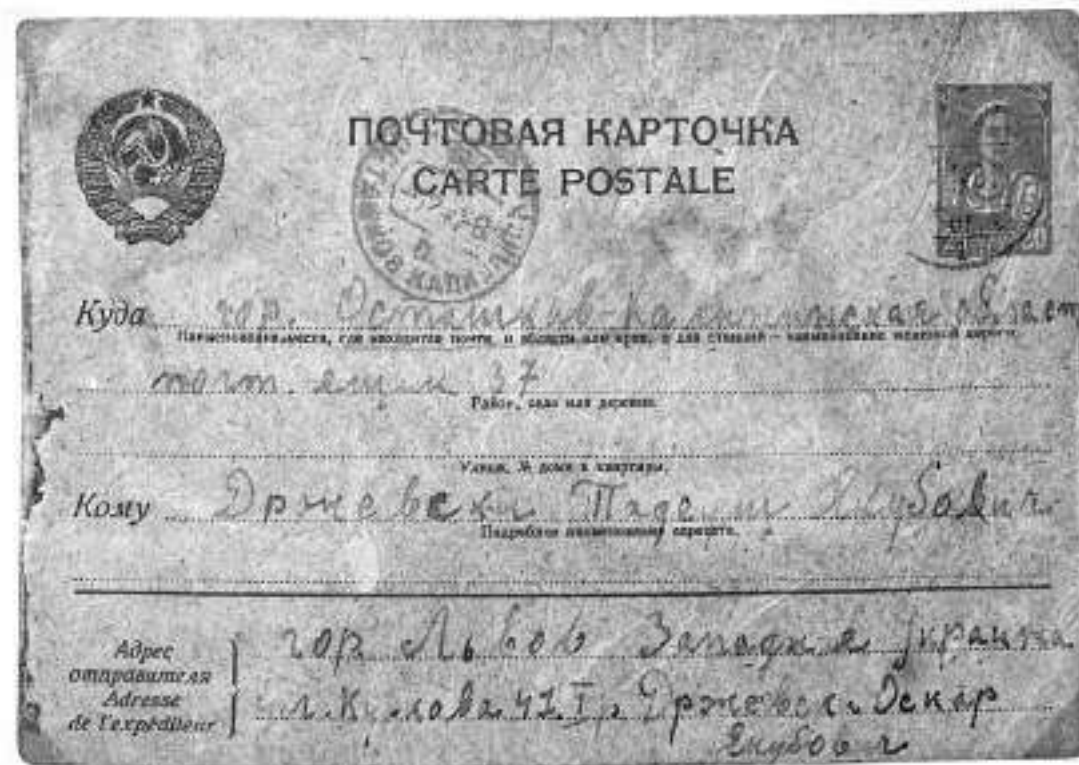 ПОЧТОВАЯ КАРТОЧКА
CARTE POSTALE
Куда гор. Осташков-Калининская област
Наименование места, где находится почта, и области или края, а для станций — наименование железной дороги.
почт. ящик 37
Район, село или деревня.
Улица, № дома и квартиры.
Кому Држевски Тадеуш Якубович
Подробное наименование адресата.
Адрес отправителя
Adresse de l'expéditeur
гор Львов Западная Украина
ул. 42 I, Држевски Оскар
Якубович